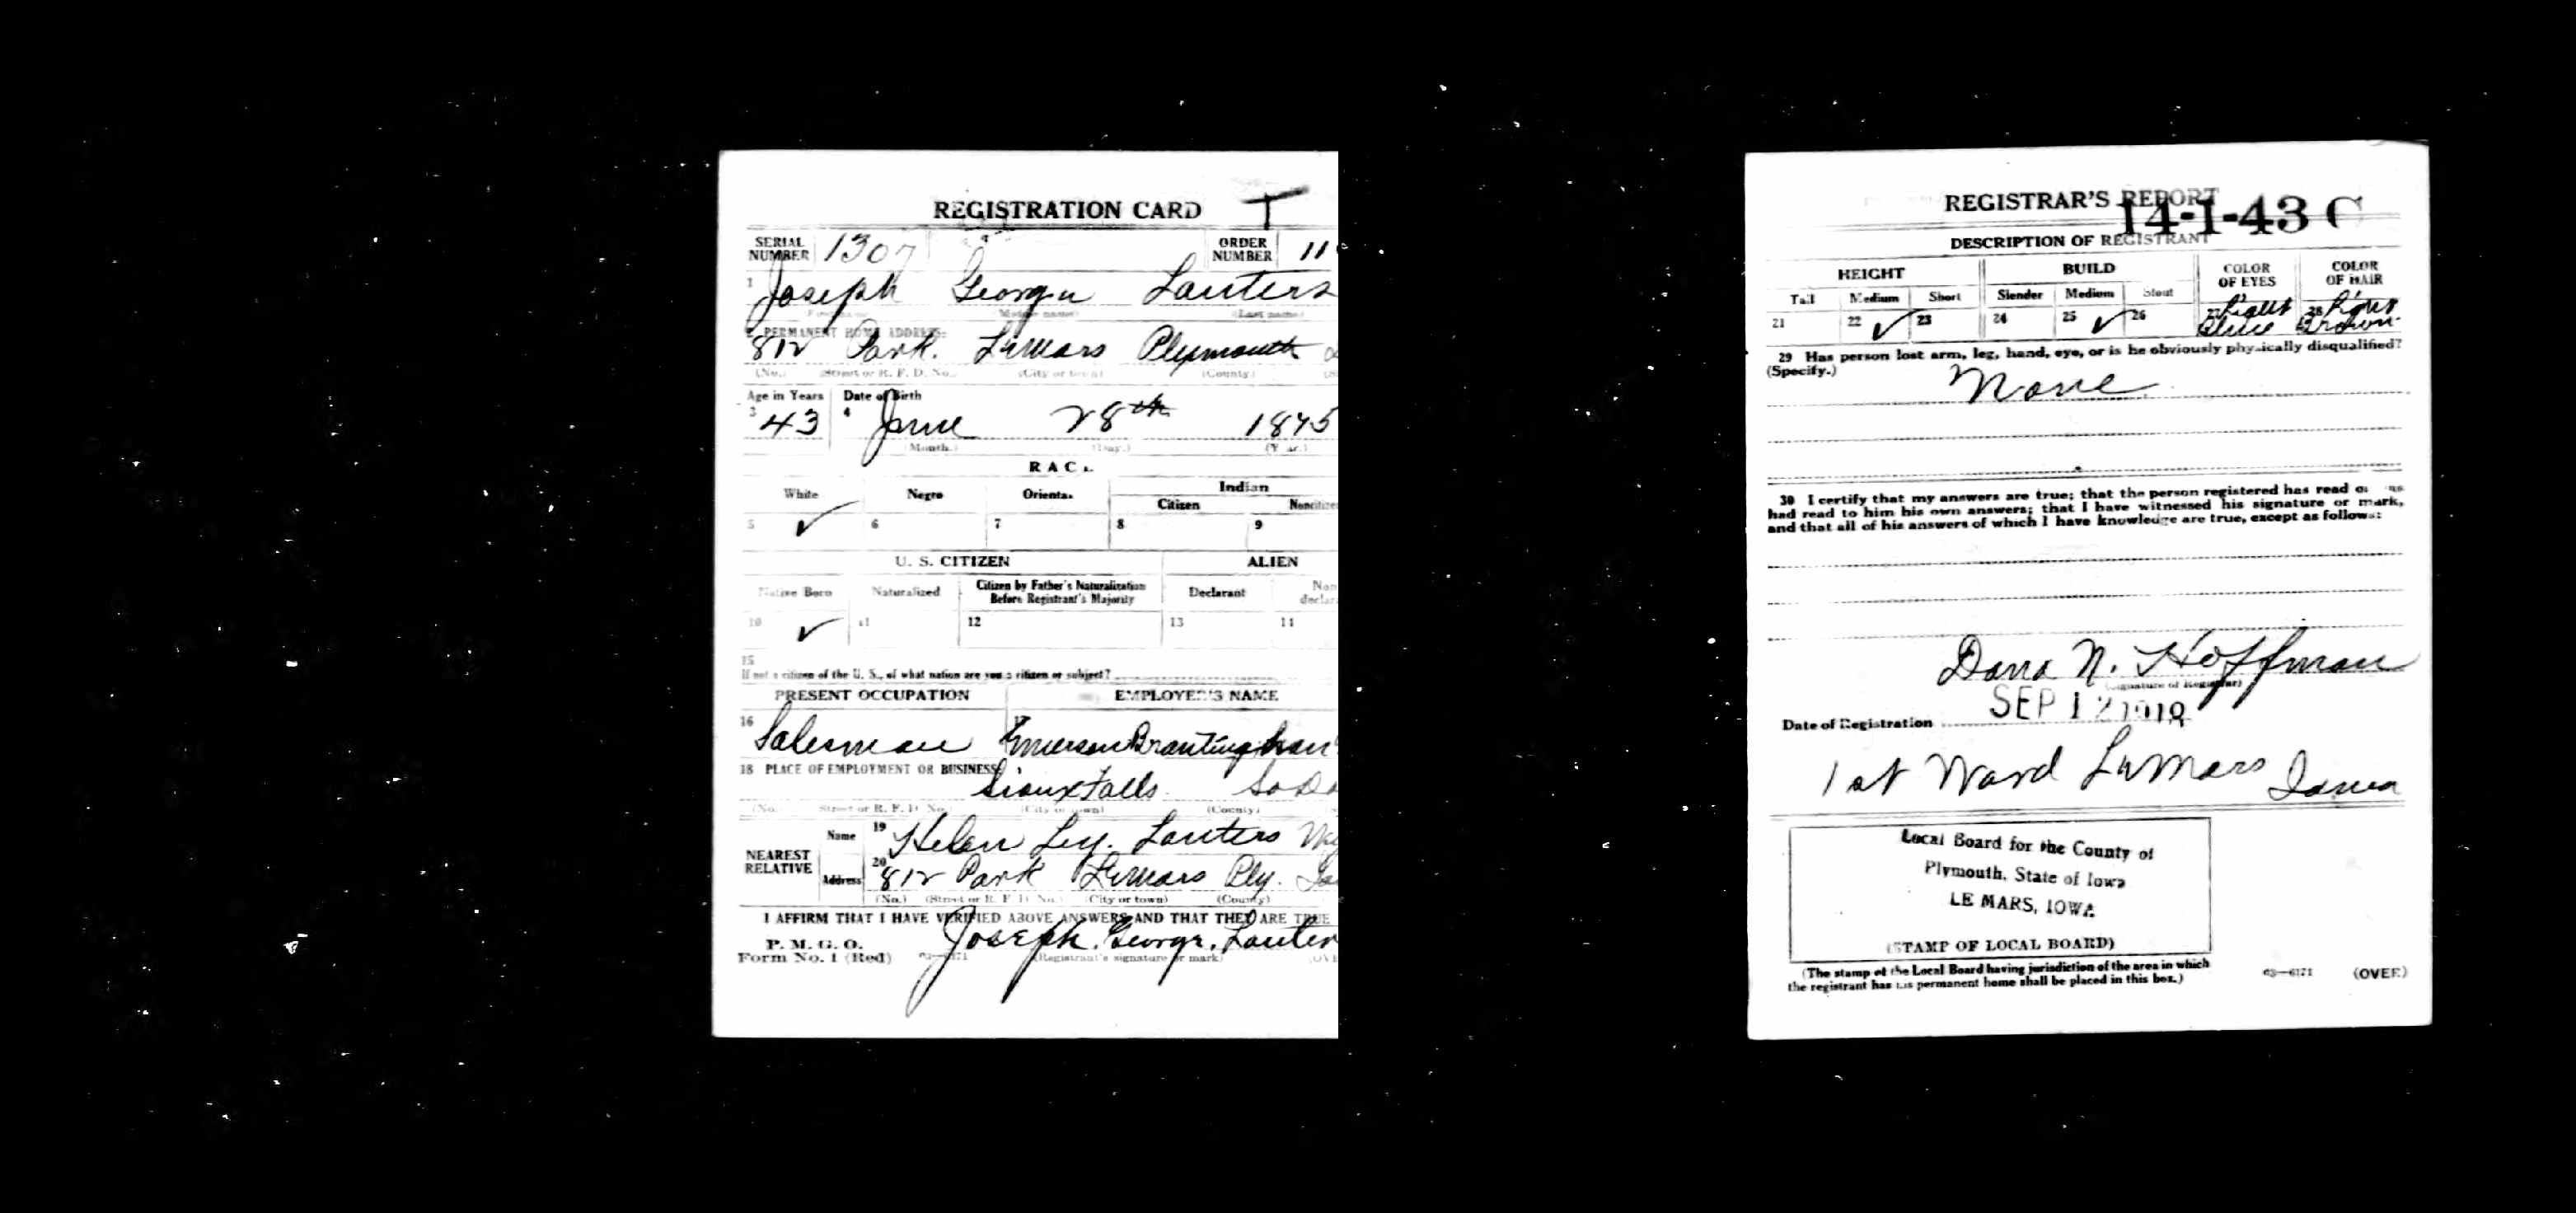 REGISTRATION CARD
SERIAL NUMBER 1307 ORDER NUMBER 11
1 Joseph George Lauters
(First name) (Middle name) (Last name)
2 PERMANENT HOME ADDRESS:
812 Park. LeMars Plymouth
(No.) (Street or R. F. D. No.) (City or town) (County)
Age in Years Date of Birth
3 43 4 June 28th 1875
(Month.) (Day.) (Year.)
RACE
White Negro Oriental Indian
Citizen Noncitizen
5 ✓ 6 7 8 9
U. S. CITIZEN ALIEN
Native Born Naturalized Citizen by Father's Naturalization Before Registrant's Majority Declarant Non-declar
10 ✓ 11 12 13 14
15
If not a citizen of the U. S., of what nation are you a citizen or subject?
PRESENT OCCUPATION EMPLOYER'S NAME
16 Salesman 17 Emerson Brantingham
18 PLACE OF EMPLOYMENT OR BUSINESS:
Sioux Falls. So Da
(No.) (Street or R. F. D. No.) (City or town) (County)
NEAREST RELATIVE Name 19 Helen Lauters
Address 20 812 Park LeMars Ply. Ia
(No.) (Street or R. F. D. No.) (City or town) (County)
I AFFIRM THAT I HAVE VERIFIED ABOVE ANSWERS AND THAT THEY ARE TRUE
P. M. G. O.
Form No. 1 (Red) 03—6171 Joseph. George. Lauter
(Registrant's signature or mark) (OVE
REGISTRAR'S REPORT
14-1-43 C
DESCRIPTION OF REGISTRANT
HEIGHT BUILD COLOR OF EYES COLOR OF HAIR
Tall Medium Short Slender Medium Stout
21 22 ✓ 23 24 25 ✓ 26 27 Light Blue 28 Light Brown.
29 Has person lost arm, leg, hand, eye, or is he obviously physically disqualified?
(Specify.)
None
30 I certify that my answers are true; that the person registered has read or has
had read to him his own answers; that I have witnessed his signature or mark,
and that all of his answers of which I have knowledge are true, except as follows:
Dana N. Hoffman
(Signature of Registrar)
Date of Registration SEP 12 1918
1st Ward LeMars Iowa
Local Board for the County of
Plymouth, State of Iowa
LE MARS, IOWA
(STAMP OF LOCAL BOARD)
(The stamp of the Local Board having jurisdiction of the area in which
the registrant has his permanent home shall be placed in this box.)
03—6171 (OVER)